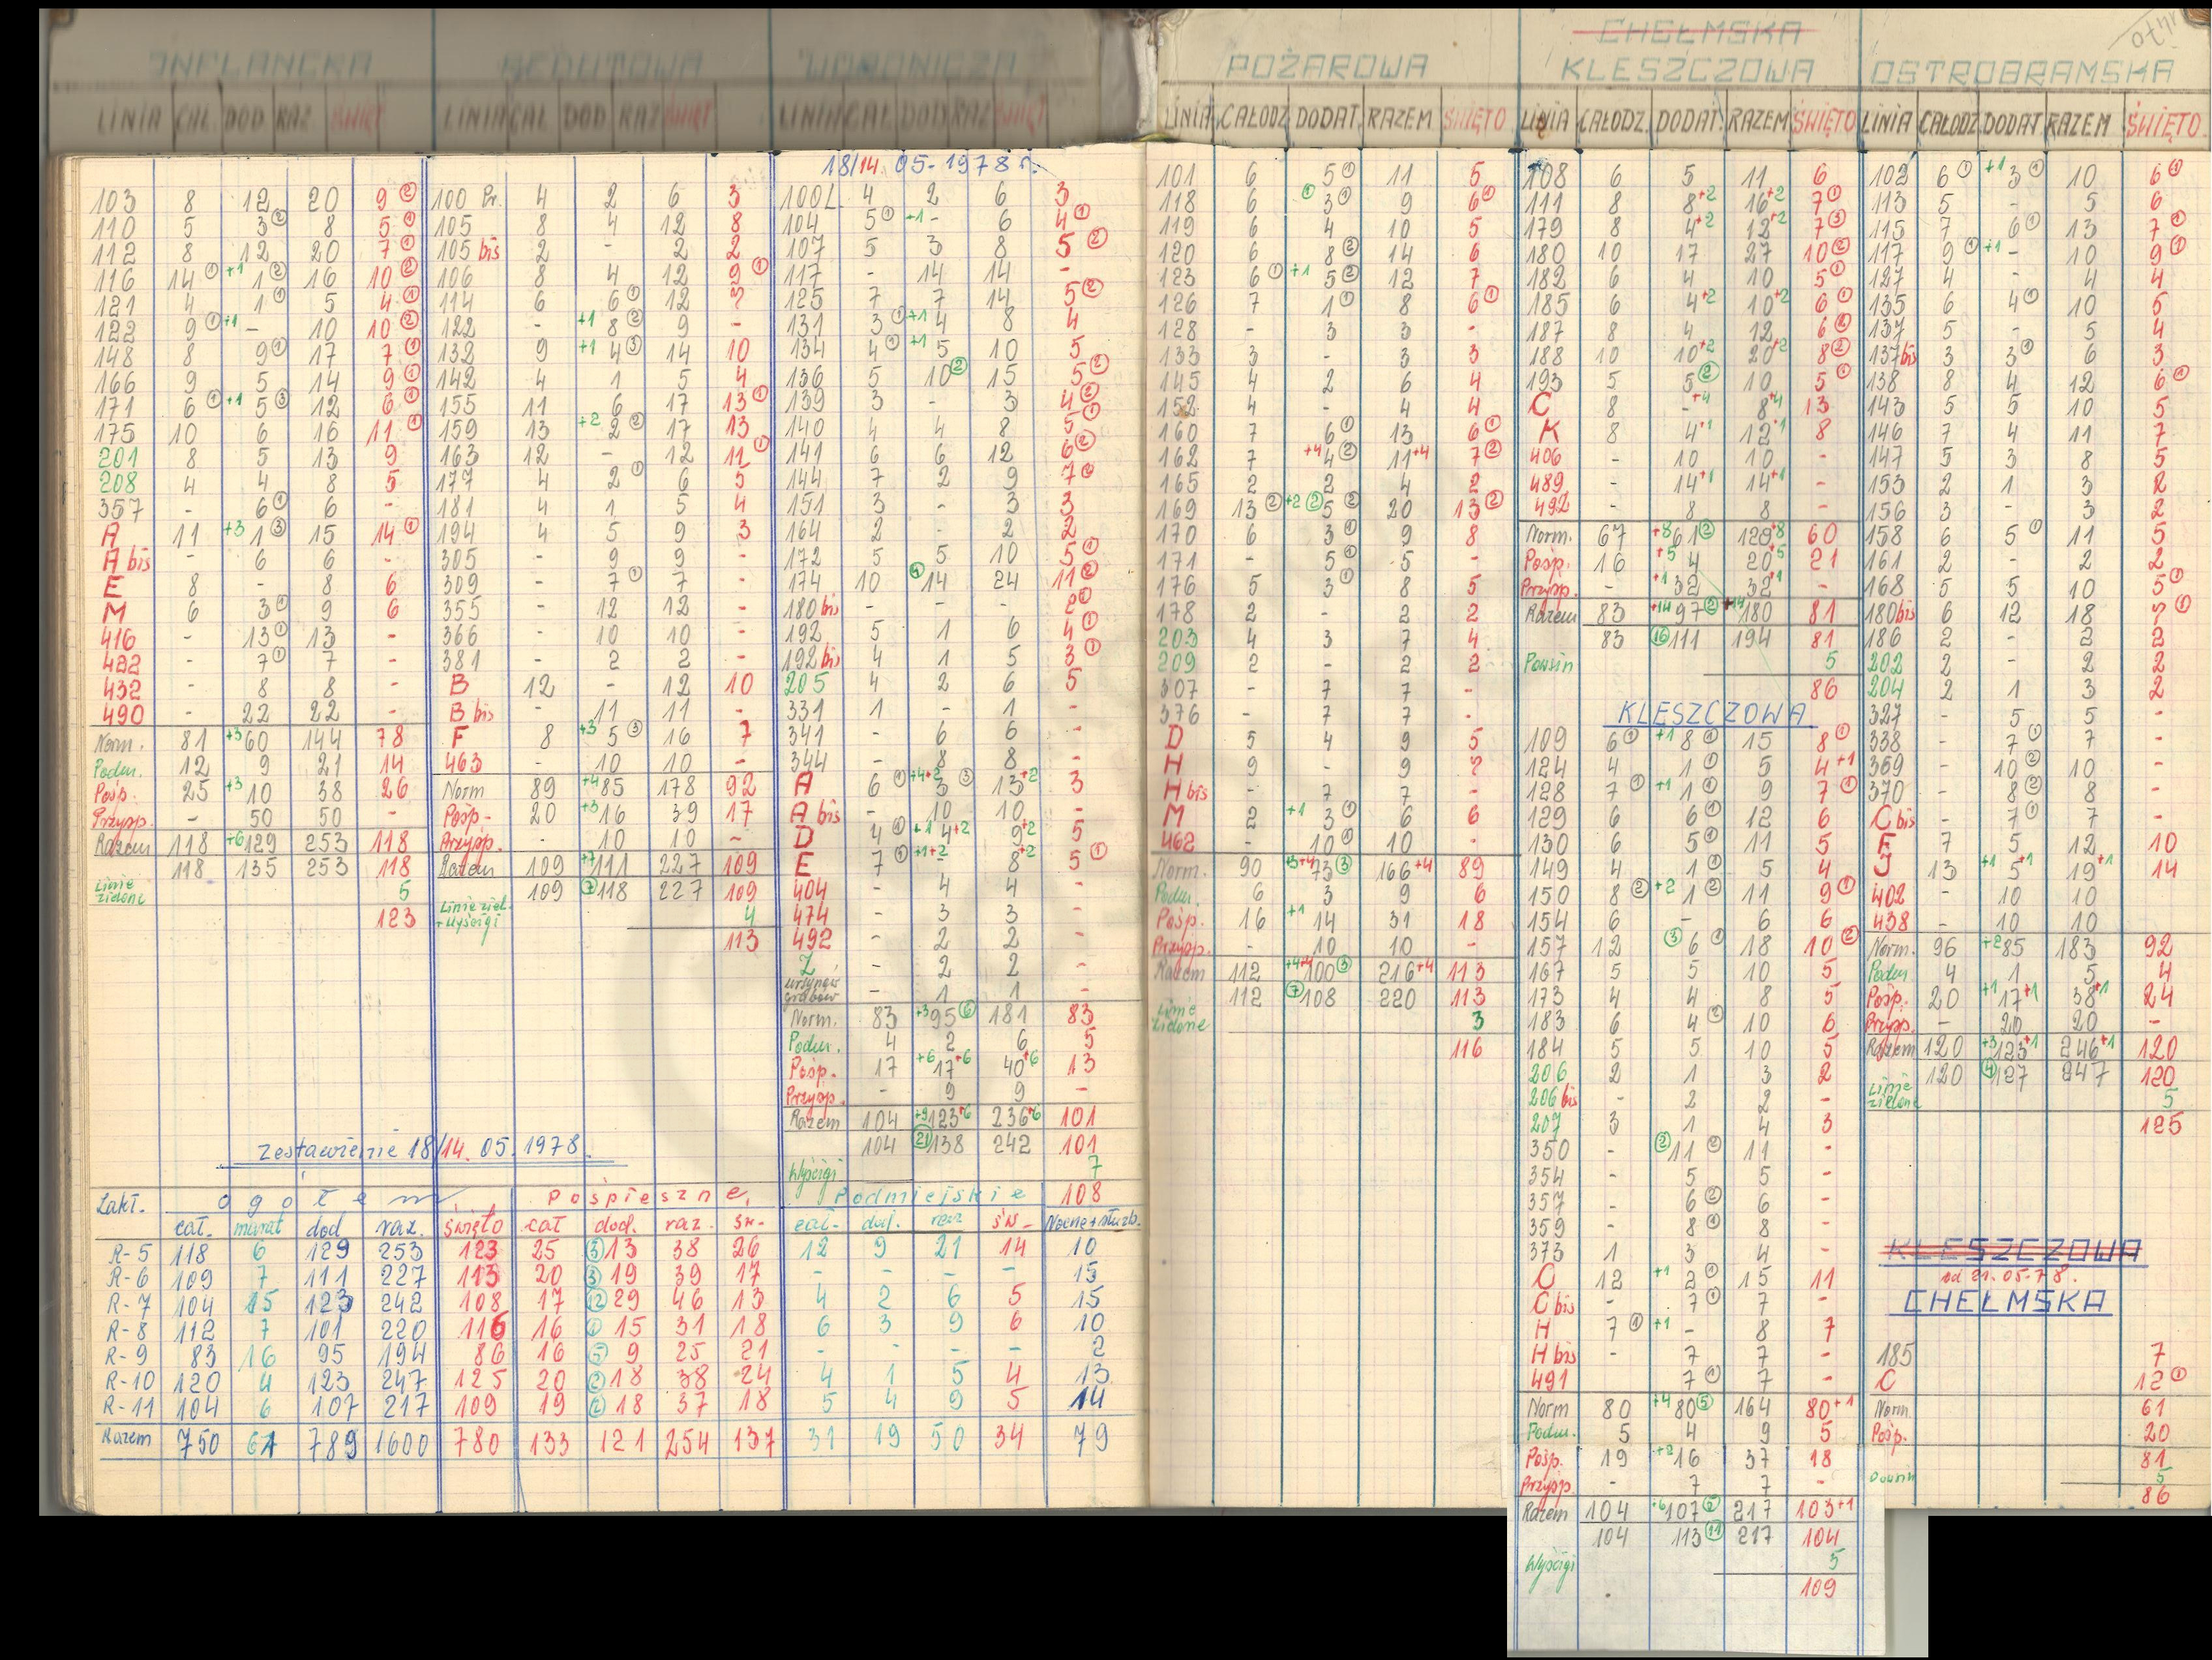 INFLANCKA
LINIA CAŁ. DOD RAZ. ŚWIĘT
103 8 12 20 9 ②
110 5 3② 8 5 ①
112 8 12 20 7 ①
116 14① +1 1② 16 10 ②
121 4 1① 5 4 ①
122 9① +1 - 10 10 ②
148 8 9① 17 7 ①
166 9 5 14 9 ①
171 6① +1 5③ 12 6 ①
175 10 6 16 11 ①
201 8 5 13 9
208 4 4 8 5
357 - 6① 6 -
A 11 +3 1③ 15 14 ①
A bis - 6 6 -
E 8 - 8 6
M 6 3① 9 6
416 - 13① 13 -
422 - 7① 7 -
432 - 8 8 -
490 - 22 22 -
Norm. 81 +3 60 144 78
Podm. 12 9 21 14
Posp. 25 +3 10 38 26
Przysp. - 50 50 -
Razem 118 +6 129 253 118
118 135 253 118
Linie zielone 5
123
REDUTOWA
LINIA CAŁ DOD RAZ ŚWIĘT
100 Pr. 4 2 6 3
105 8 4 12 8
105 bis 2 - 2 2
106 8 4 12 9 ①
114 6 6① 12 7
122 - +1 8② 9 -
132 9 +1 4③ 14 10
142 4 1 5 4
155 11 6 17 13 ①
159 13 +2 2② 17 13
163 12 - 12 11 ①
177 4 2① 6 5
181 4 1 5 4
194 4 5 9 3
305 - 9 9 -
309 - 7① 7 -
355 - 12 12 -
366 - 10 10 -
381 - 2 2 -
B 12 - 12 10
B bis - 11 11 -
F 8 +3 5③ 16 7
463 - 10 10 -
Norm 89 +4 85 178 92
Posp- 20 +3 16 39 17
Przysp. - 10 10 -
Razem 109 +7 111 227 109
109 ⑦118 227 109
Linie ziel. + Wyścigi 4
113
WORONICZA
LINIA CAŁ DOD RAZ ŚWIĘT
18/14. 05-1978 r.
100L 4 2 6 3
104 5① +1 - 6 4 ①
107 5 3 8 5 ②
117 - 14 14 -
125 7 7 14 5 ②
131 3① +1 4 8 4
134 4① +1 5 10 5
136 5 10② 15 5 ②
139 3 - 3 4 ②
140 4 4 8 5 ①
141 6 6 12 6 ②
144 7 2 9 7 ①
151 3 - 3 3
164 2 - 2 2
172 5 5 10 5 ①
174 10 ④ 14 24 11 ②
180 bis - - - 2 ①
192 5 1 6 4 ①
192 bis 4 1 5 3 ①
205 4 2 6 5
331 1 - 1 -
341 - 6 6 -
344 - 8 8 -
A 6① +4+2 3③ 13+2 3
A bis - 10 10 -
D 4① +1 4+2 9+2 5
E 7① +1+2 8+2 5 ①
404 - 4 4 -
474 - 3 3 -
492 - 2 2 -
Z - 2 2 -
Ursynów Grabów - 1 1 -
Norm. 83 +3 95⑥ 181 83
Podm. 4 2 6 5
Posp. 17 +6 17+6 40+6 13
Przysp. - 9 9 -
Razem 104 +9 123+6 236+6 101
104 ㉑138 242 101
Wyścigi 7
108
Zestawienie 18/14. 05. 1978.
Zakł. ogółem pośpieszne. podmiejskie
cał. marat dod raz. święto cał dod. raz. św. cał. dod. raz św. Nocne+służb.
R-5 118 6 129 253 123 25 ③13 38 26 12 9 21 14 10
R-6 109 7 111 227 113 20 ③19 39 17 - - - - 15
R-7 104 15 123 242 108 17 ⑫29 46 13 4 2 6 5 15
R-8 112 7 101 220 116 16 ①15 31 18 6 3 9 6 10
R-9 83 16 95 194 86 16 ⑤9 25 21 - - - - 2
R-10 120 4 123 247 125 20 ②18 38 24 4 1 5 4 13
R-11 104 6 107 217 109 19 ②18 37 18 5 4 9 5 14
Razem 750 61 789 1600 780 133 121 254 137 31 19 50 34 79
POŻAROWA
LINIA CAŁODZ DODAT. RAZEM ŚWIĘTO
101 6 5① 11 5
118 6 ① 3① 9 6①
119 6 4 10 5
120 6 8② 14 6
123 6① +1 5② 12 7
126 7 1① 8 6①
128 - 3 3 -
133 3 - 3 3
145 4 2 6 4
152 4 - 4 4
160 7 6① 13 6①
162 7 +4 4② 11+4 7②
165 2 2 4 2
169 13② +2② 5② 20 13②
170 6 3① 9 8
171 - 5① 5 -
176 5 3① 8 5
178 2 - 2 2
203 4 3 7 4
209 2 - 2 2
307 - 7 7 -
376 - 7 7 -
D 5 4 9 5
H 9 - 9 7
H bis - 7 7 -
M 2 +1 3① 6 6
462 - 10① 10 -
Norm. 90 +3+4 73③ 166+4 89
Podm. 6 3 9 6
Pośp. 16 +1 14 31 18
Przysp. - 10 10 -
Razem 112 +4+4 100③ 216+4 113
112 ⑦108 220 113
Linie zielone 3
116
CHEŁMSKA
KLESZCZOWA
LINIA CAŁODZ. DODAT. RAZEM ŚWIĘTO
108 6 5 11 6
111 8 8+2 16+2 7①
179 8 4+2 12+2 7③
180 10 17 27 10②
182 6 4 10 5①
185 6 4+2 10+2 6①
187 8 4 12 6②
188 10 10+2 20+2 8②
193 5 5② 10 5①
C 8 -+4 8+4 13
K 8 4+1 12+1 8
406 - 10 10 -
489 - 14+1 14+1 -
492 - 8 8 -
Norm. 67 +8 61② 128+8 60
Pośp. 16 +5 4 20+5 21
Przysp. - +1 32 32+1 -
Razem 83 +14 97② +14 180 81
83 ⑯111 194 81
Powsin 5
86
KLESZCZOWA
109 6① +1 8① 15 8①
124 4 1① 5 4+1
128 7① +1 1① 9 7①
129 6 6① 12 6
130 6 5① 11 5
149 4 1① 5 4
150 8② +2 1② 11 9①
154 6 - 6 6
157 12 ③ 6① 18 10②
167 5 5 10 5
173 4 4 8 5
183 6 4② 10 6
184 5 5 10 5
206 2 1 3 2
206 bis - 2 2 -
207 3 1 4 3
350 - ②11② 11 -
354 - 5 5 -
357 - 6② 6 -
359 - 8① 8 -
373 1 3 4 -
C 12 +1 2① 15 11
C bis - 7① 7 -
H 7① +1 - 8 7
H bis - 7 7 -
491 7① 7 -
Norm 80 +4 80⑤ 164 80+1
Podm. 5 4 9 5
Pośp. 19 +2 16 37 18
Przysp. - 7 7 -
Razem 104 +6 107⑤ 217 103+1
104 113⑪ 217 104
Wyścigi 5
109
OSTROBRAMSKA
LINIA CAŁODZ DODAT RAZEM ŚWIĘTO
102 6① +1 3① 10 6①
113 5 - 5 6
115 7 6① 13 7①
117 9① +1 - 10 9①
127 4 - 4 4
135 6 4① 10 5
137 5 - 5 4
137 bis 3 3① 6 3
138 8 4 12 6①
143 5 5 10 5
146 7 4 11 7
147 5 3 8 5
153 2 1 3 2
156 3 - 3 2
158 6 5① 11 5
161 2 - 2 2
168 5 5 10 5①
180 bis 6 12 18 7①
186 2 - 2 2
202 2 - 2 2
204 2 1 3 2
327 - 5 5 -
338 - 7① 7 -
369 - 10② 10 -
370 - 8② 8 -
C bis - 7① 7 -
F 7 5 12 10
J 13 +1 5+1 19+1 14
402 - 10 10 -
438 - 10 10
Norm. 96 +2 85 183 92
Podm 4 1 5 4
Pośp. 20 +1 17+1 38+1 24
Przysp. - 20 20 -
Razem 120 +3 123+1 246+1 120
120 ④127 247 120
Linie zielone 5
125
KLESZCZOWA
od 21. 05-78.
CHEŁMSKA
185 7
C 12①
Norm. 61
Pośp. 20
81
Powsin 5
86